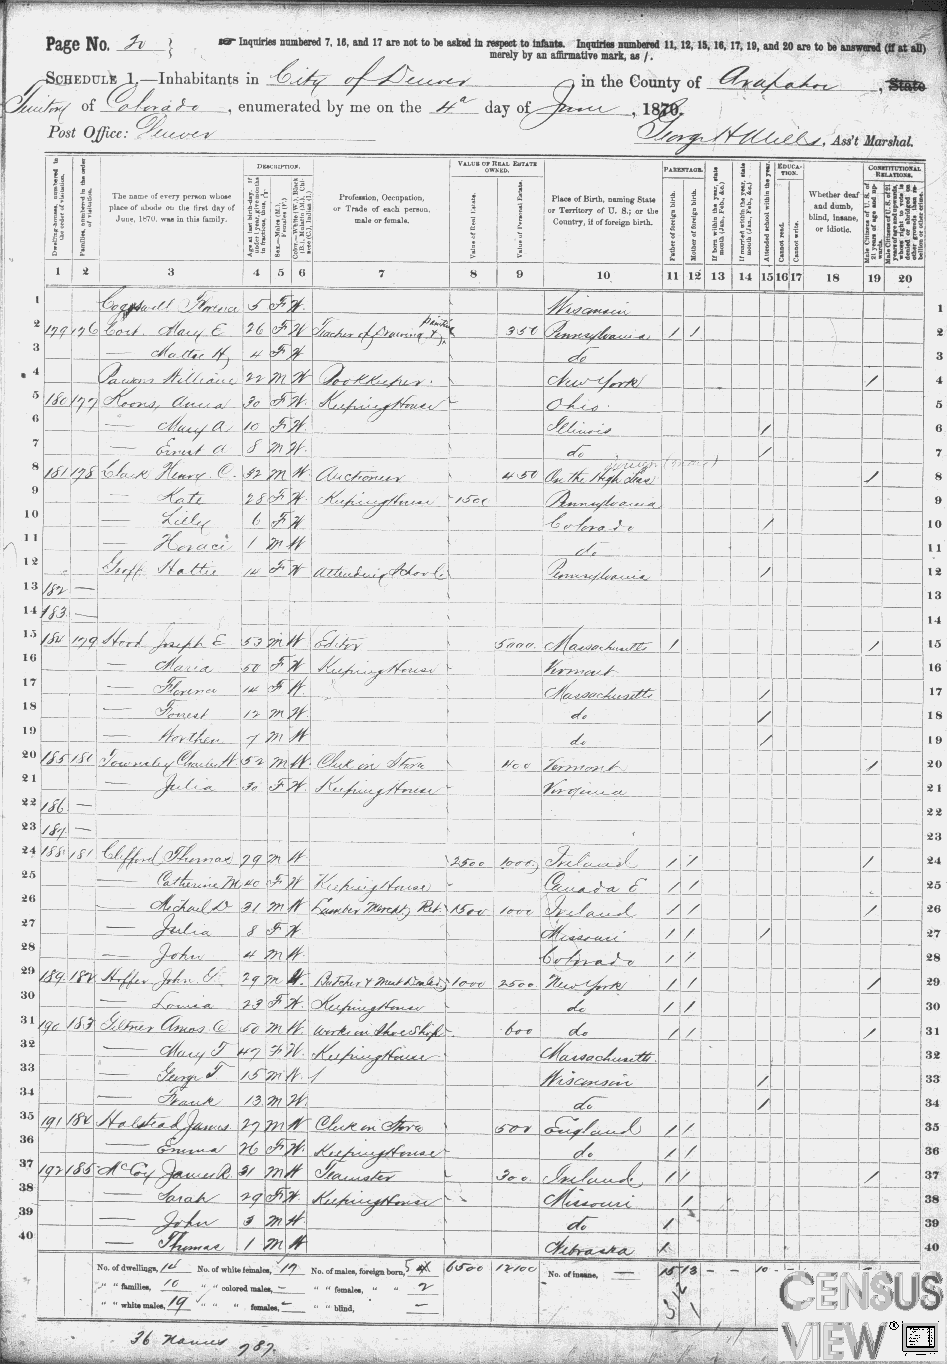 Page No. 20
☞ Inquiries numbered 7, 16, and 17 are not to be asked in respect to infants. Inquiries numbered 11, 12, 15, 16, 17, 19, and 20 are to be answered (if at all)
merely by an affirmative mark, as /.
SCHEDULE 1.—Inhabitants in City of Denver in the County of Arapahoe, State
Territory of Colorado, enumerated by me on the 4th day of June, 1870.
Post Office: Denver George H Mills, Ass't Marshal.
DESCRIPTION. VALUE OF REAL ESTATE OWNED. PARENTAGE. EDUCATION. CONSTITUTIONAL RELATIONS.
Dwelling-houses, numbered in the order of visitation.
Families, numbered in the order of visitation.
The name of every person whose place of abode on the first day of June, 1870, was in this family.
Sex.—Males (M.), Females (F.)
Profession, Occupation, or Trade of each person, male or female.
Value of Real Estate.
Place of Birth, naming State or Territory of U. S.; or the Country, if of foreign birth.
Father of foreign birth.
Mother of foreign birth.
If born within the year, state month (Jan., Feb., &c.)
If married within the year, state month (Jan., Feb., &c.)
Attended school within the year.
Cannot read.
Cannot write.
Whether deaf and dumb, blind, insane, or idiotic.
1 2 3 4 5 6 7 8 9 10 11 12 13 14 15 16 17 18 19 20
1 Florence 5 F W Wisconsin 1
2 179 176 Mary E 26 F W Teacher of Drawing & Painting 350 Pennsylvania / / 2
3 — Mattie H 4 F W do 3
4 William 22 M W Bookkeeper New York / 4
5 180 177 Koons, Anna 30 F W Keeping House Ohio 5
6 — Mary A 10 F W Illinois / 6
7 — Ernest A 8 M W do / 7
8 181 178 Clark Henry C. 32 M W Auctioneer 450 On the High Seas / 8
9 — Kate 28 F W Keeping House 1500 Pennsylvania 9
10 — Lilly 6 F W Colorado / 10
11 — Horace 1 M W do 11
12 Groff Hattie 14 F W Attending School Pennsylvania / 12
13 182 — 13
14 183 — 14
15 184 179 Hood Joseph E 53 M W Editor 5000 Massachusetts / / 15
16 — Maria 50 F W Keeping House Vermont 16
17 — Florence 14 F W Massachusetts / 17
18 — Forrest 12 M W do / 18
19 — Worthen 7 M W do / 19
20 185 180 Townsley W 52 M W Clerk in Store 400 Vermont / 20
21 — Julia 30 F W Keeping House Virginia 21
22 186 — 22
23 187 — 23
24 188 181 Clifford Thomas 29 M W 2500 1000 Ireland / / / 24
25 — Catherine M 40 F W Keeping House Canada E / / 25
26 — Michael D 31 M W Lumber Mercht, Ret. 1500 1000 Ireland / / / 26
27 — Julia 8 F W Missouri / / / 27
28 — John 4 M W Colorado / / 28
29 189 182 Hoffer John 29 M W Butcher & Meat Dealer 1000 2500 New York / / / 29
30 — Louisa 23 F W Keeping House do / / 30
31 190 183 Giltner Amos C 50 M W Works in Shoe Shop 600 do / / / 31
32 — Mary T 47 F W Keeping House Massachusetts 32
33 — George T 15 M W / Wisconsin / 33
34 — Frank 13 M W do / 34
35 191 184 Halstead James 27 M W Clerk in Store 500 England / / 35
36 — Emma 26 F W Keeping House do / / 36
37 192 185 McCoy James R 31 M W Teamster 300 Ireland / / / 37
38 — Sarah 29 F W Keeping House Missouri / 38
39 — John 3 M W do / 39
40 — Thomas 1 M W Nebraska / 40
No. of dwellings, 14 No. of white females, 17 No. of males, foreign born, 6500 12100 No. of insane, — 15 13 - - 10 - -
" " families, 10 " " colored males, — " " females, " " 2
" " white males, 19 " " " females, — " " blind, —
36 Names
787.
CENSUS
VIEW®